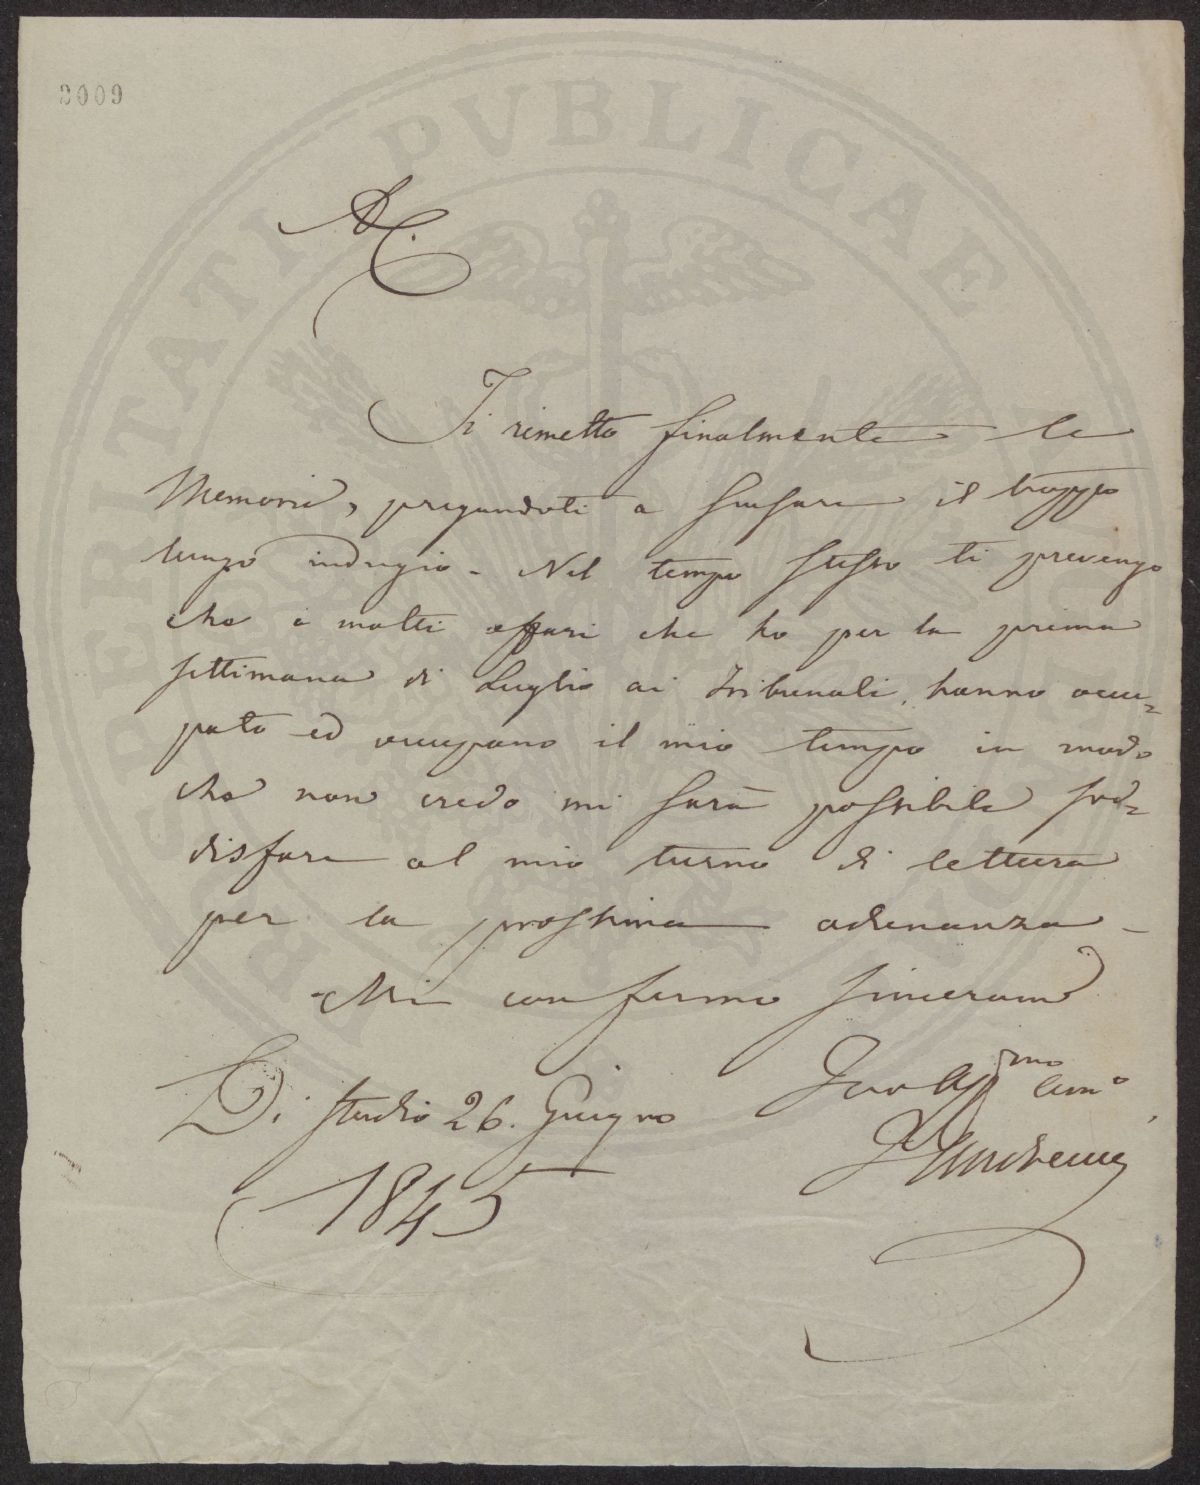 2009
PROSPERITATI PVBLICAE AVGENDAE
A. C.
Ti rimetto finalmente le
Memorie, pregandoti a scusare il troppo
lungo indugio. Nel tempo stesso ti prevengo
che i molti affari che ho per la prima
settimana di Luglio ai Tribunali, hanno occu=
pato ed occupano il mio tempo in modo
che non credo mi sarà possibile sod=
disfare al mio turno di lettura
per la prossima adunanza.
Mi confermo sinceram
Di Studio 26. Giugno
1845
Tuo Aff.mo Am.o